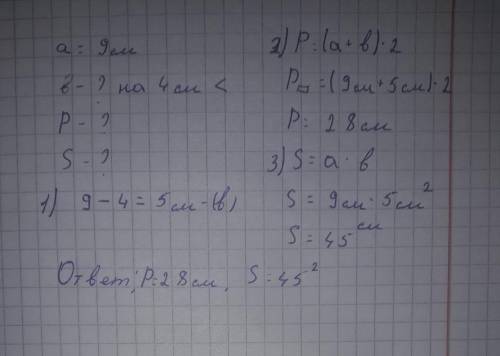 a = 9см
в - ? на 4 см <
P - ?
S - ?
1) 9 - 4 = 5 см - (в)
2) P = (a + в) · 2
P▭ = (9см + 5см) · 2
P = 28 см
3) S = a · в
S = 9см · 5см²
S = 45 см
Ответ; P = 28 см, S = 45²